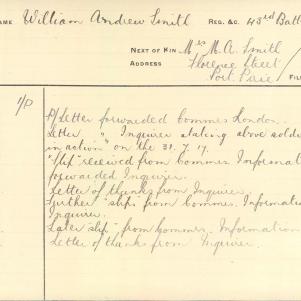 NAME William Andrew Smith REG. &C. 43rd Batt
NEXT OF KIN Mrs M. A. Smith
ADDRESS Florence Street
Port Pirie FIL
1/D
P/Letter forwarded Commrs London.
Letter " Inquirer stating above soldi
in action" on the 31.7.17.
"Slip" received from Commrs. Informat
forwarded Inquirer.
Letter of thanks from Inquirers.
Further "slip" from Commrs. Information
Inquirer.
Later slip from Commrs. Information
Letter of thanks from Inquirer.